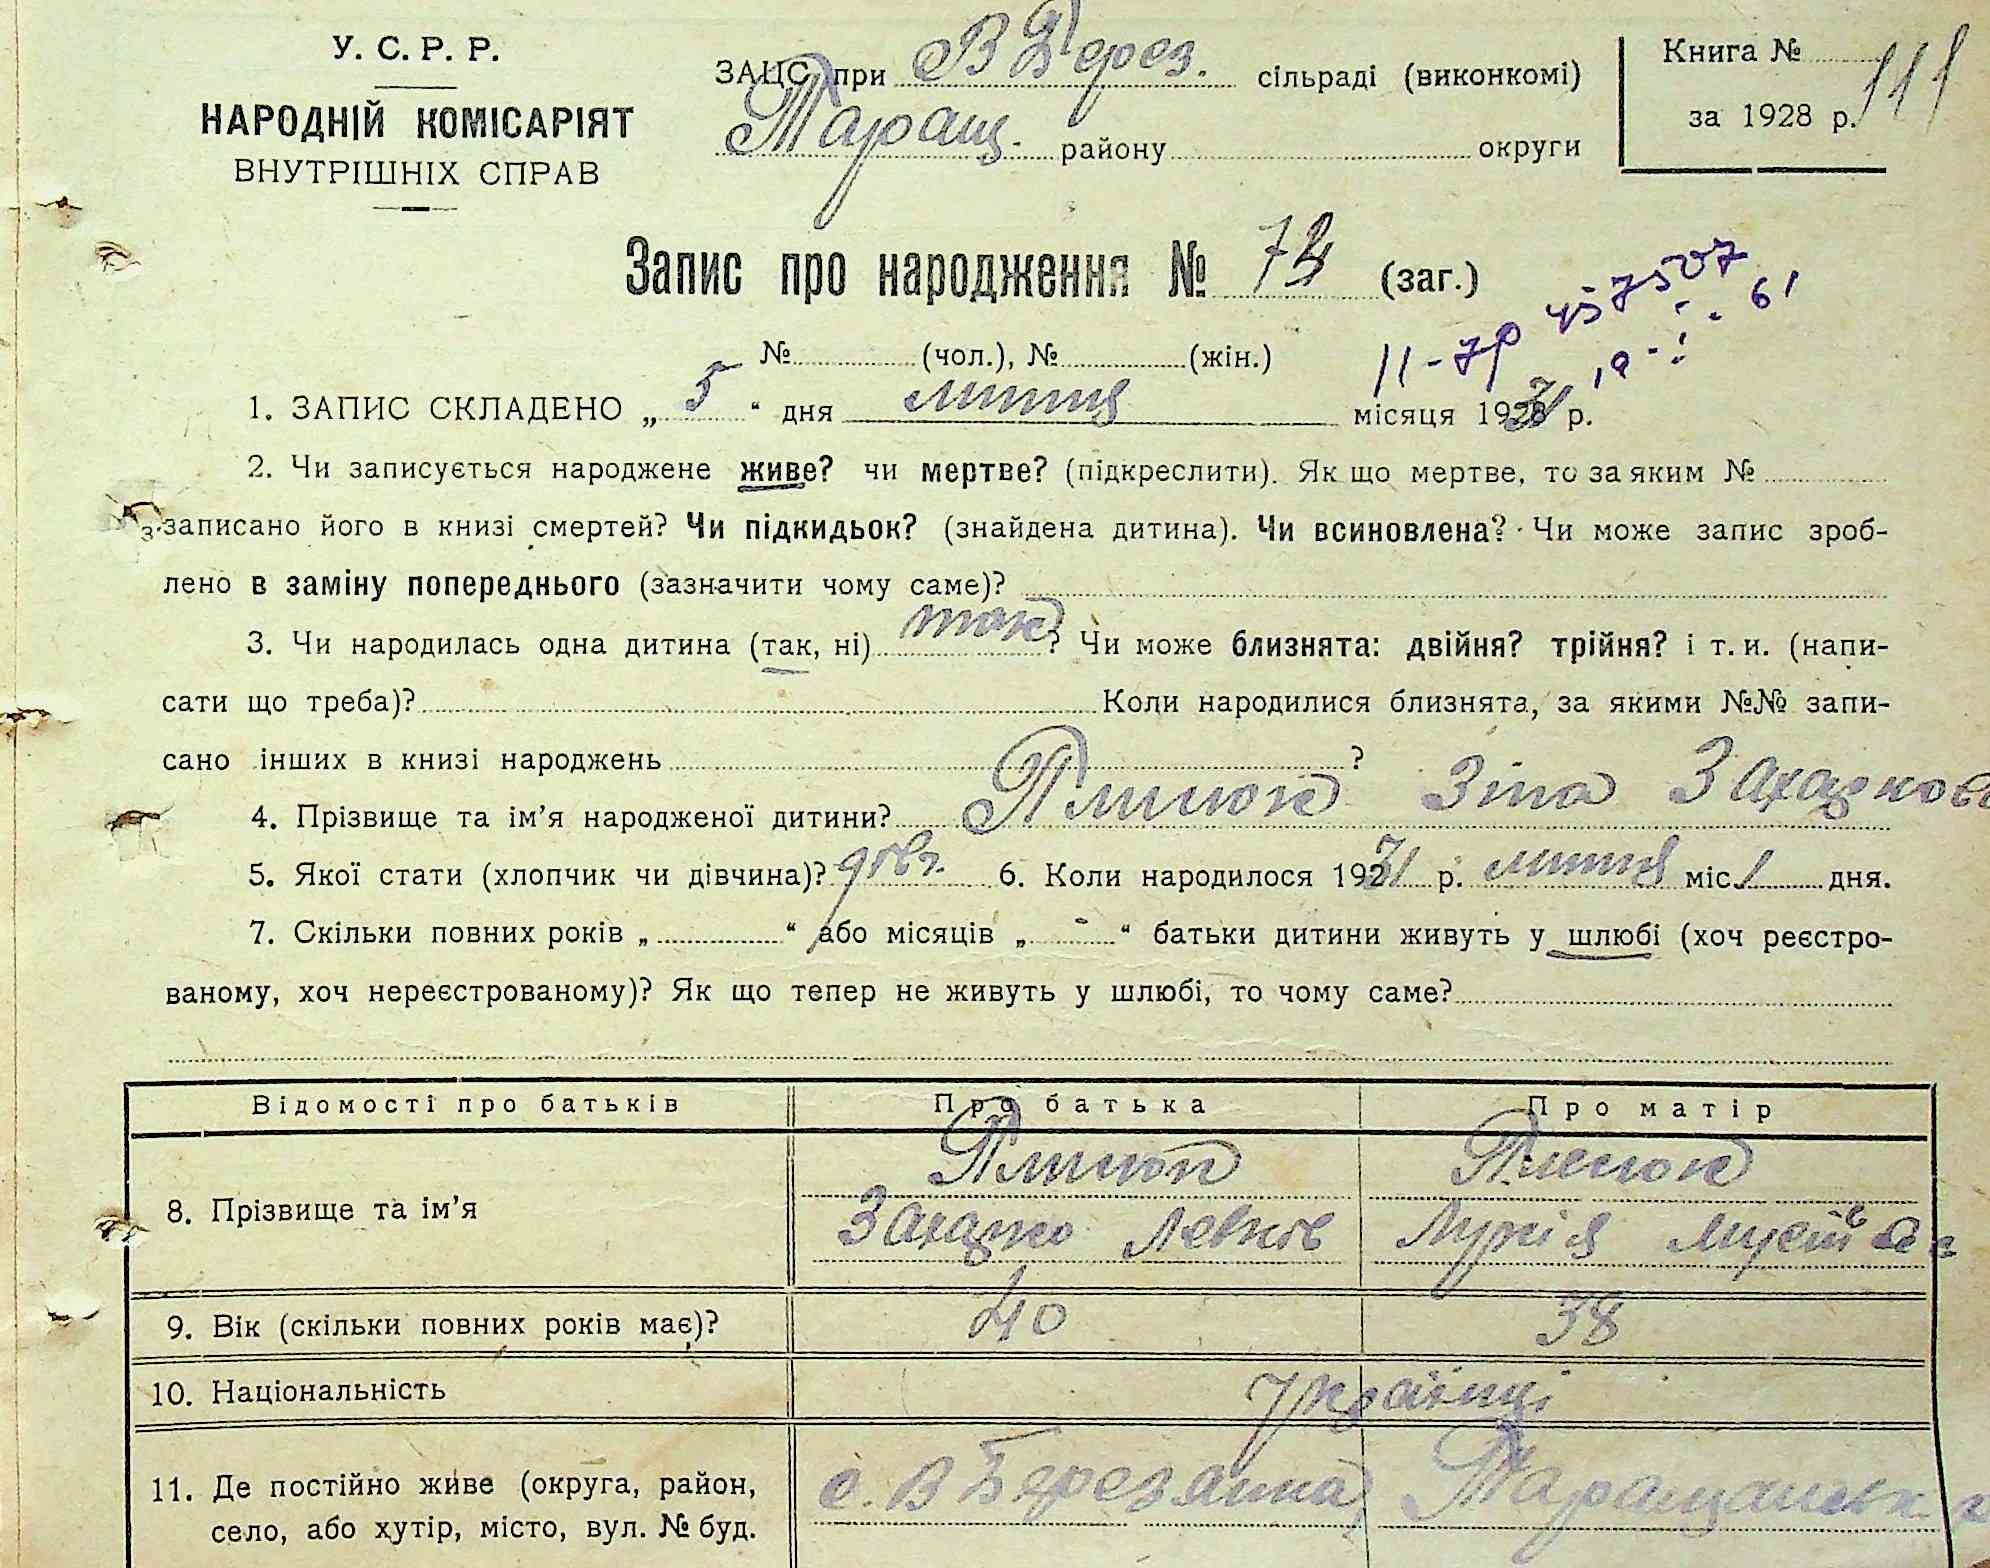 У. С. Р. Р.
НАРОДНІЙ КОМІСАРІЯТ
ВНУТРІШНІХ СПРАВ
ЗАЦС при В Берез. сільраді (виконкомі)
Таращ. району округи
Книга №
за 1928 р.
111
Запис про народження № 74 (заг.)
№ (чол.), № (жін.)
1. ЗАПИС СКЛАДЕНО „ 5 “ дня липня місяця 1931 р.
2. Чи записується народжене живе? чи мертве? (підкреслити). Як що мертве, то за яким №
записано його в книзі смертей? Чи підкидьок? (знайдена дитина). Чи всиновлена? Чи може запис зроб-
лено в заміну попереднього (зазначити чому саме)?
3. Чи народилась одна дитина (так, ні) так ? Чи може близнята: двійня? трійня? і т. и. (напи-
сати що треба)? Коли народилися близнята, за якими №№ запи-
сано інших в книзі народжень ?
4. Прізвище та ім’я народженої дитини? Плисюк Зіна Захарков
5. Якої стати (хлопчик чи дівчина)? дівч. 6. Коли народилося 1931 р. липня міс. 1 дня.
7. Скільки повних років „ “ або місяців „ - “ батьки дитини живуть у шлюбі (хоч реєстро-
ваному, хоч нереєстрованому)? Як що тепер не живуть у шлюбі, то чому саме?
Відомості про батьків Про батька Про матір
8. Прізвище та ім’я
Плисюк
Захарко Левків
Плисюк
Лукія
9. Вік (скільки повних років має)? 40 38
10. Національність Українці
11. Де постійно живе (округа, район,
село, або хутір, місто, вул. № буд.
с. В Березянка, Таращанськ